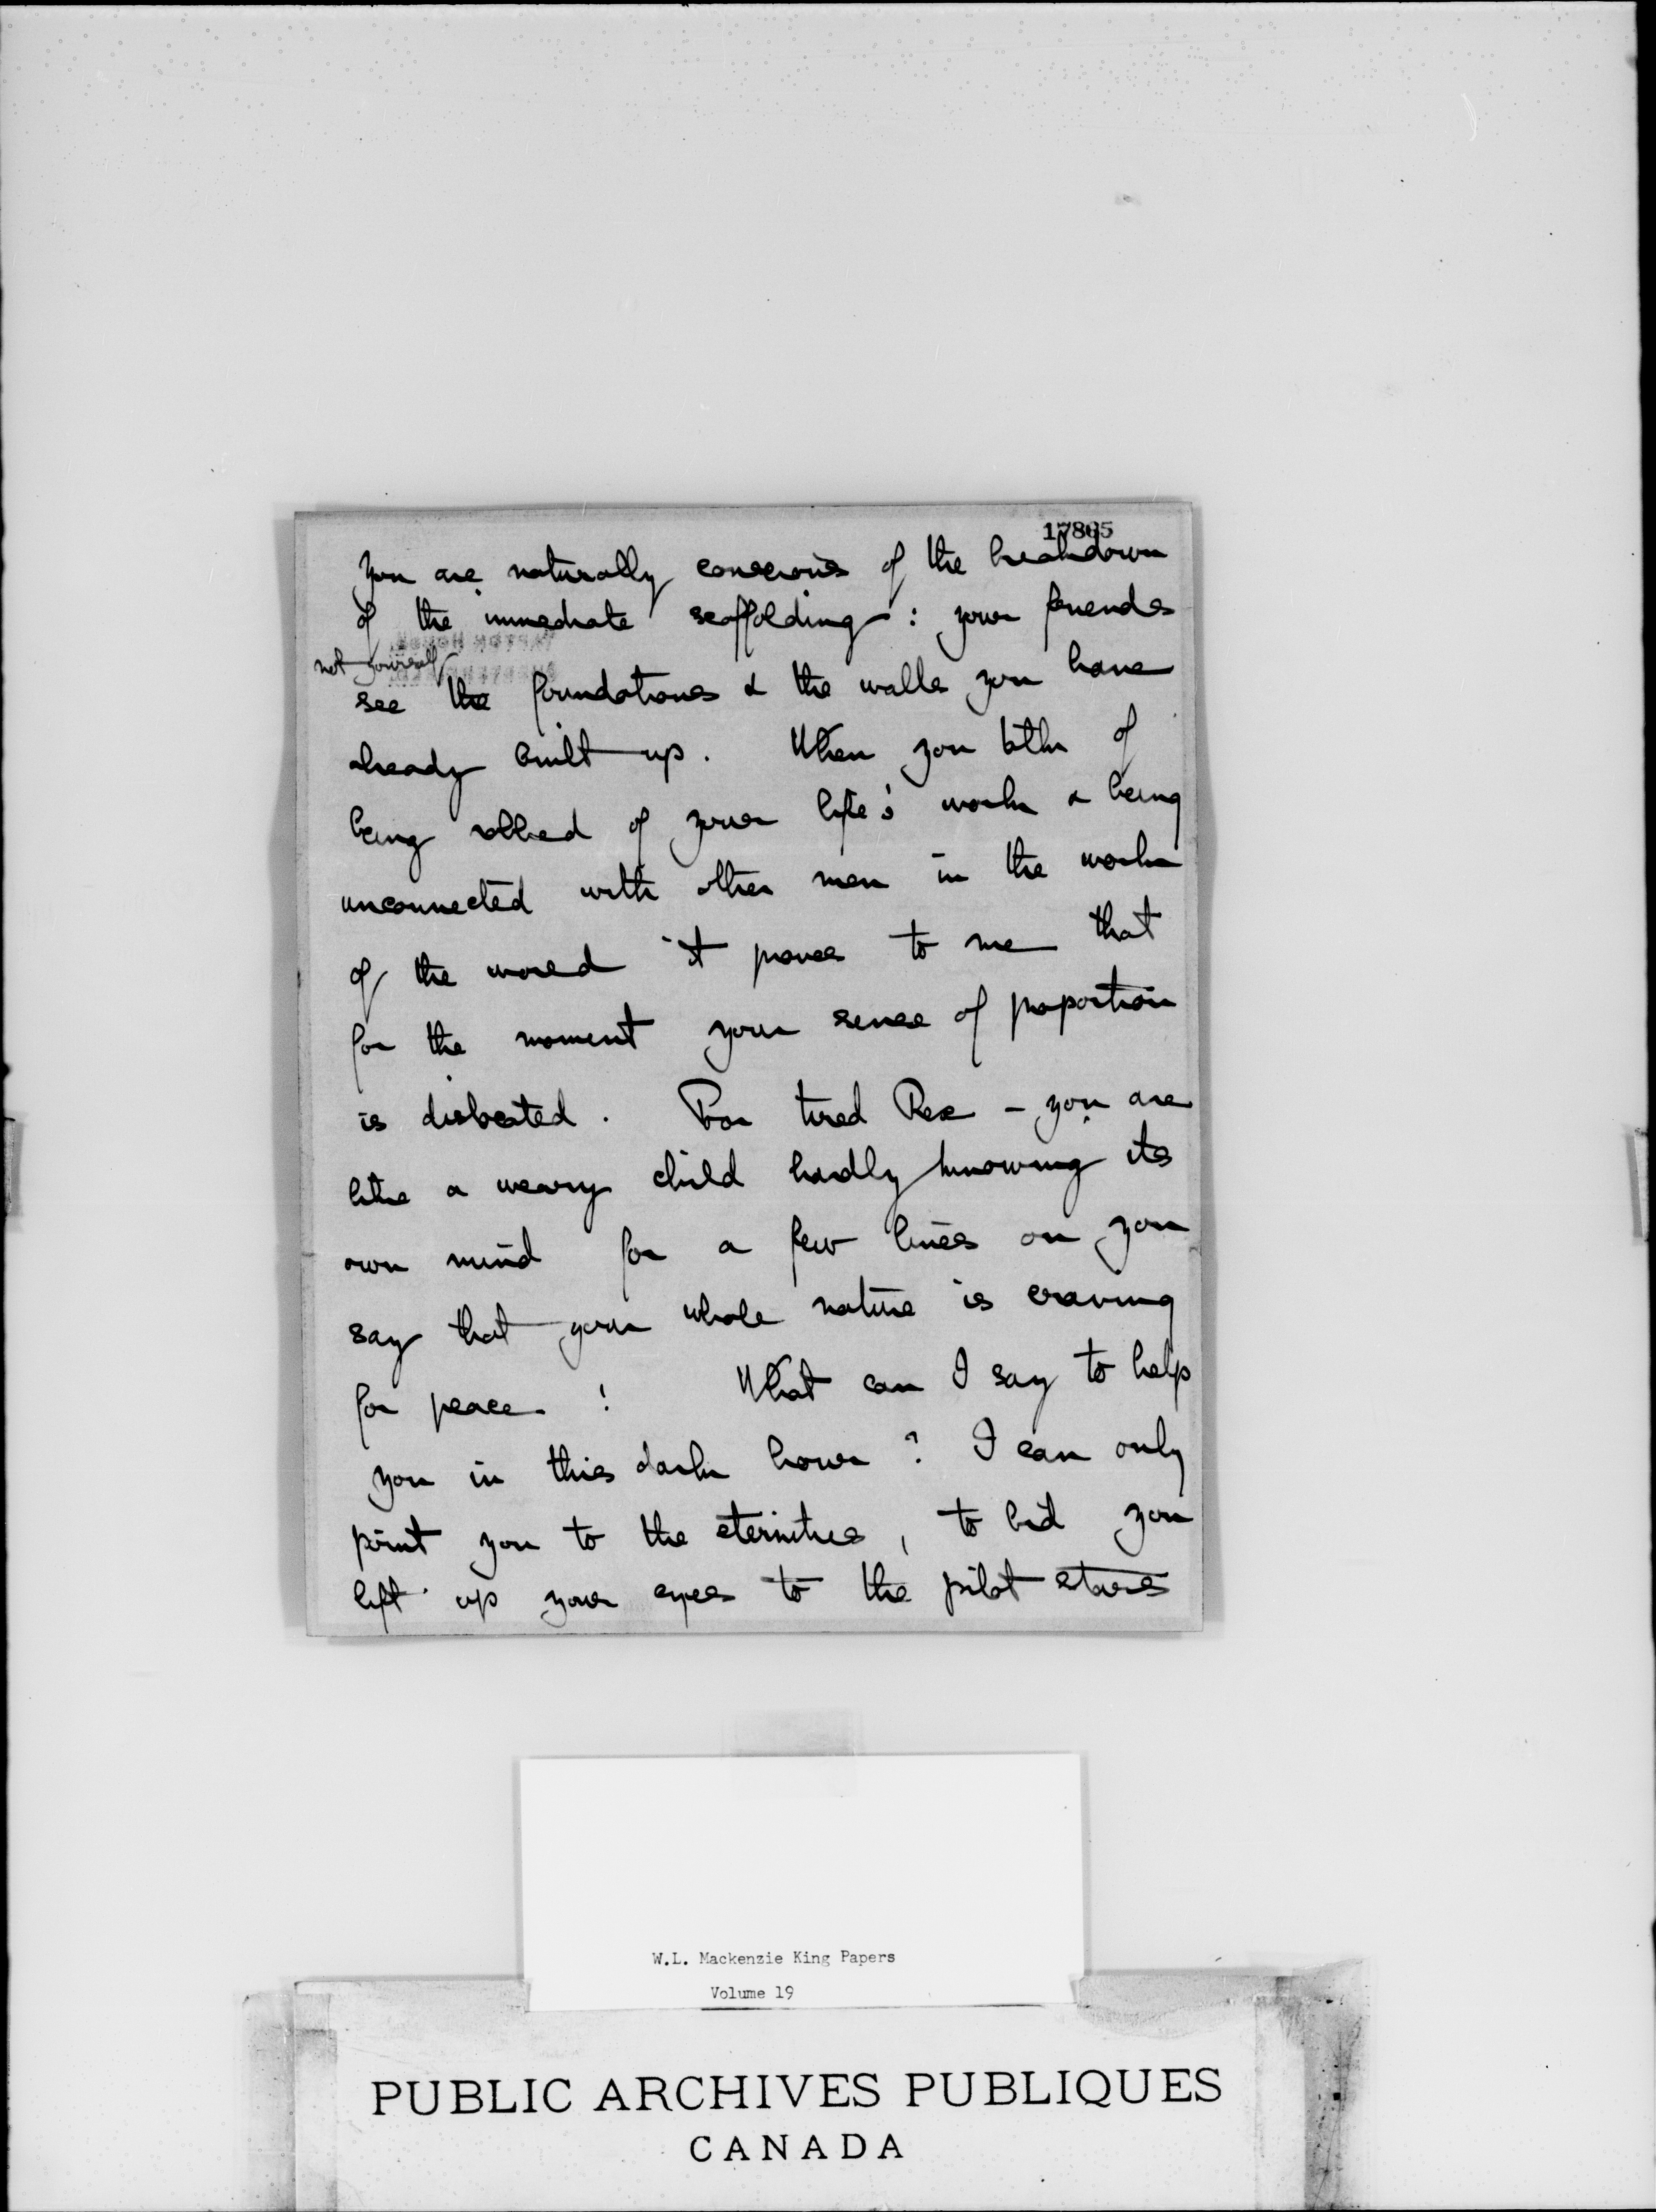 17865
You are naturally conscious of the breakdown
of the immediate scaffolding: your friends
not yourself
see the foundations & the walls you have
already built up. When you talk of
being robbed of your life's work & being
unconnected with other men in the work
of the world it proves to me that
for the moment your sense of proportion
is dislocated. Poor tired Rex - you are
like a weary child hardly knowing its
own mind for a few lines on you
say that your whole nature is craving
for peace! What can I say to help
you in this dark hour? I can only
point you to the eternities, to bid you
lift up your eyes to the pilot stars
W.L. Mackenzie King Papers
Volume 19
PUBLIC ARCHIVES PUBLIQUES
CANADA